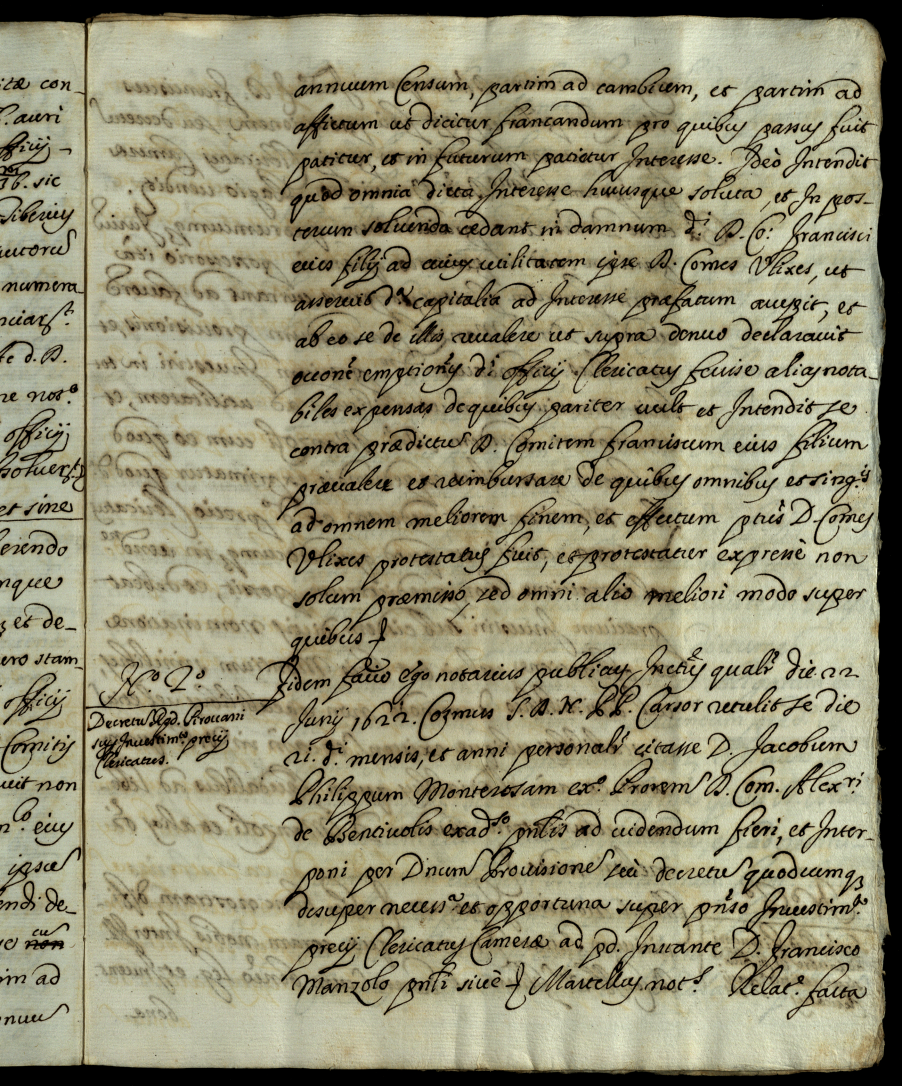 itæ con-
auri
officij
sic
Siberius
numera
te d. D.
ne not.º
officij
et sine
erendo
nque
et de-
ero stam-
officij
Comitis
uit non
n.º eius
ipsu
endi de-
non
im ad
annuum Censum, partim ad cambium, et partim ad
affictum ut dicitur francandum pro quibus passus fuit
patitur, et in futurum patietur Interesse. Ideò Intendit
quod omnia dicta Interesse hucusque soluta, et In pos-
terum soluenda cedant in damnum d.i D. Co: Francisci
eius filij ad cuius utilitatem ipse D. Comes Ulixes, ut
asseruit d.a capitalia ad Interesse præfatum accepit, et
ab eo se de illis ualere ut supra denuo declarauit
emptionis d.i officij Clericatus fecisse alias nota-
biles expensas de quibus pariter uult et Intendit se
contra prædictum D. Comitem Franciscum eius filium
præualere et reimbursare de quibus omnibus et sing.is
ad omnem meliorem finem, et effectum D. Comes
Ulixes protestatus fuit, et protestatur expressè non
solum præmisso, sed omni alio meliori modo super
quibus
N.º 2.º
Decretu
sup Inuestim.to precij
Clericatus.
Fidem facio ego notarius publicus qualr die 22
Junij 1622. Cozmus S. D. N. PP. Cursor retulit se die
21. d.i mensis, et anni personalr citasse D. Jacobum
Philippum Monterosam D. Com. Alex.ri
de Bentiuolis ad uidendum fieri, et Inter-
poni per Dnum Prouisione seu decretu quodcumq3
desuper necess.a et opportuna super Inuestim.to
precij Clericatus Cameræ ad pd. Instante D. Francisco
Manzolo siuè Martellus not.s Relat.o facta